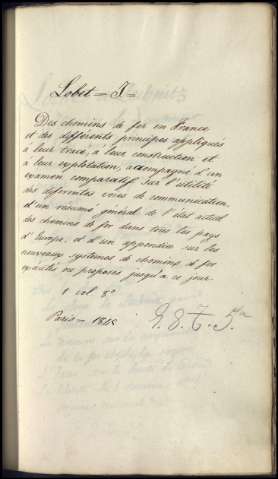 Lobet — J —
Des chemins de fer en France
et des différents principes appliqués
à leur tracé, à leur construction et
à leur exploitation, accompagné d'un
examen comparatif sur l'utilité
des différentes voies de communication,
d'un résumé général de l'état actuel
des chemins de fer dans tous les pays
d'Europe, et d'un appendice sur les
nouveaux systèmes de chemins de fer
usités ou proposés jusqu'à ce jour.
1 vol 8°
Paris — 1845